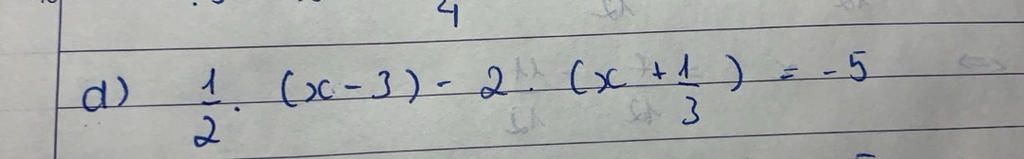 4
d) 1/2 · (x - 3) - 2 · (x + 1/3) = -5